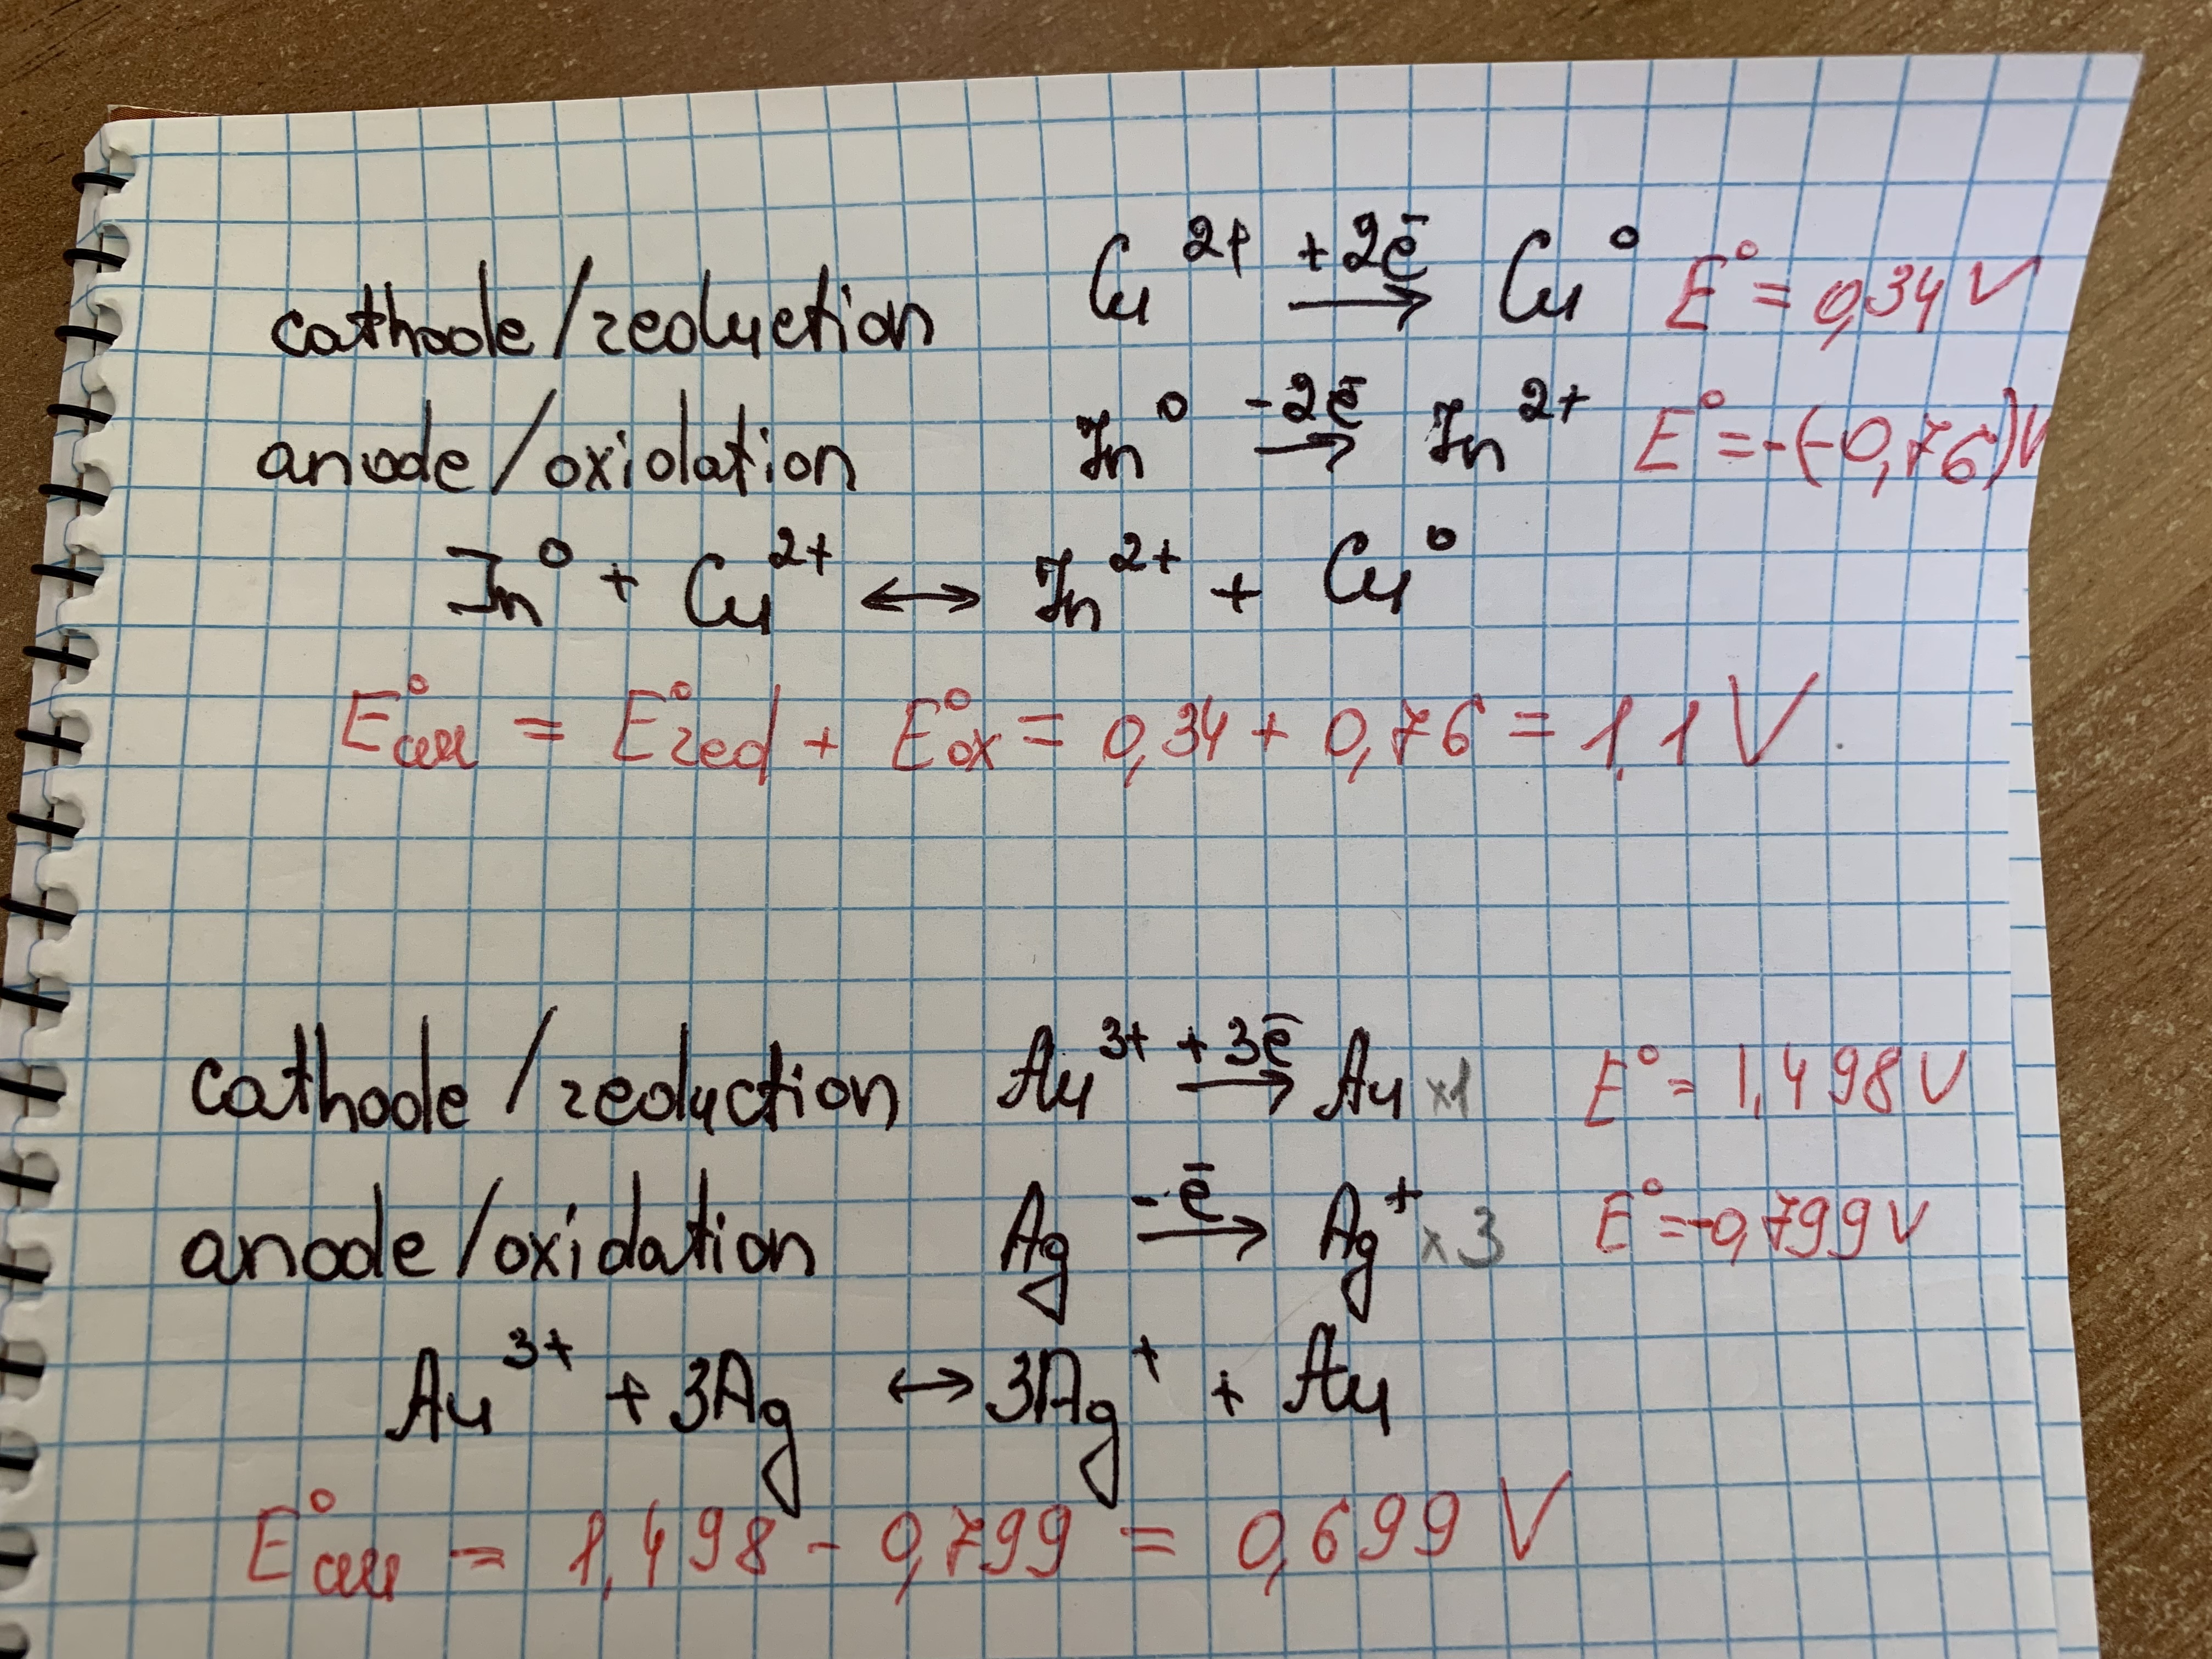 cathode/reduction Cu²⁺ +2ē → Cu⁰ E° = 0,34 V
anode/oxidation Zn⁰ -2ē → Zn²⁺ E° = -(-0,76)V
Zn⁰ + Cu²⁺ ↔ Zn²⁺ + Cu⁰
E°cell = E°red + E°ox = 0,34 + 0,76 = 1,1 V
cathode/reduction Au³⁺ +3ē → Au ×1 E° = 1,498 V
anode/oxidation Ag -ē → Ag⁺ ×3 E° = -0,799 V
Au³⁺ + 3Ag ↔ 3Ag⁺ + Au
E°cell = 1,498 - 0,799 = 0,699 V